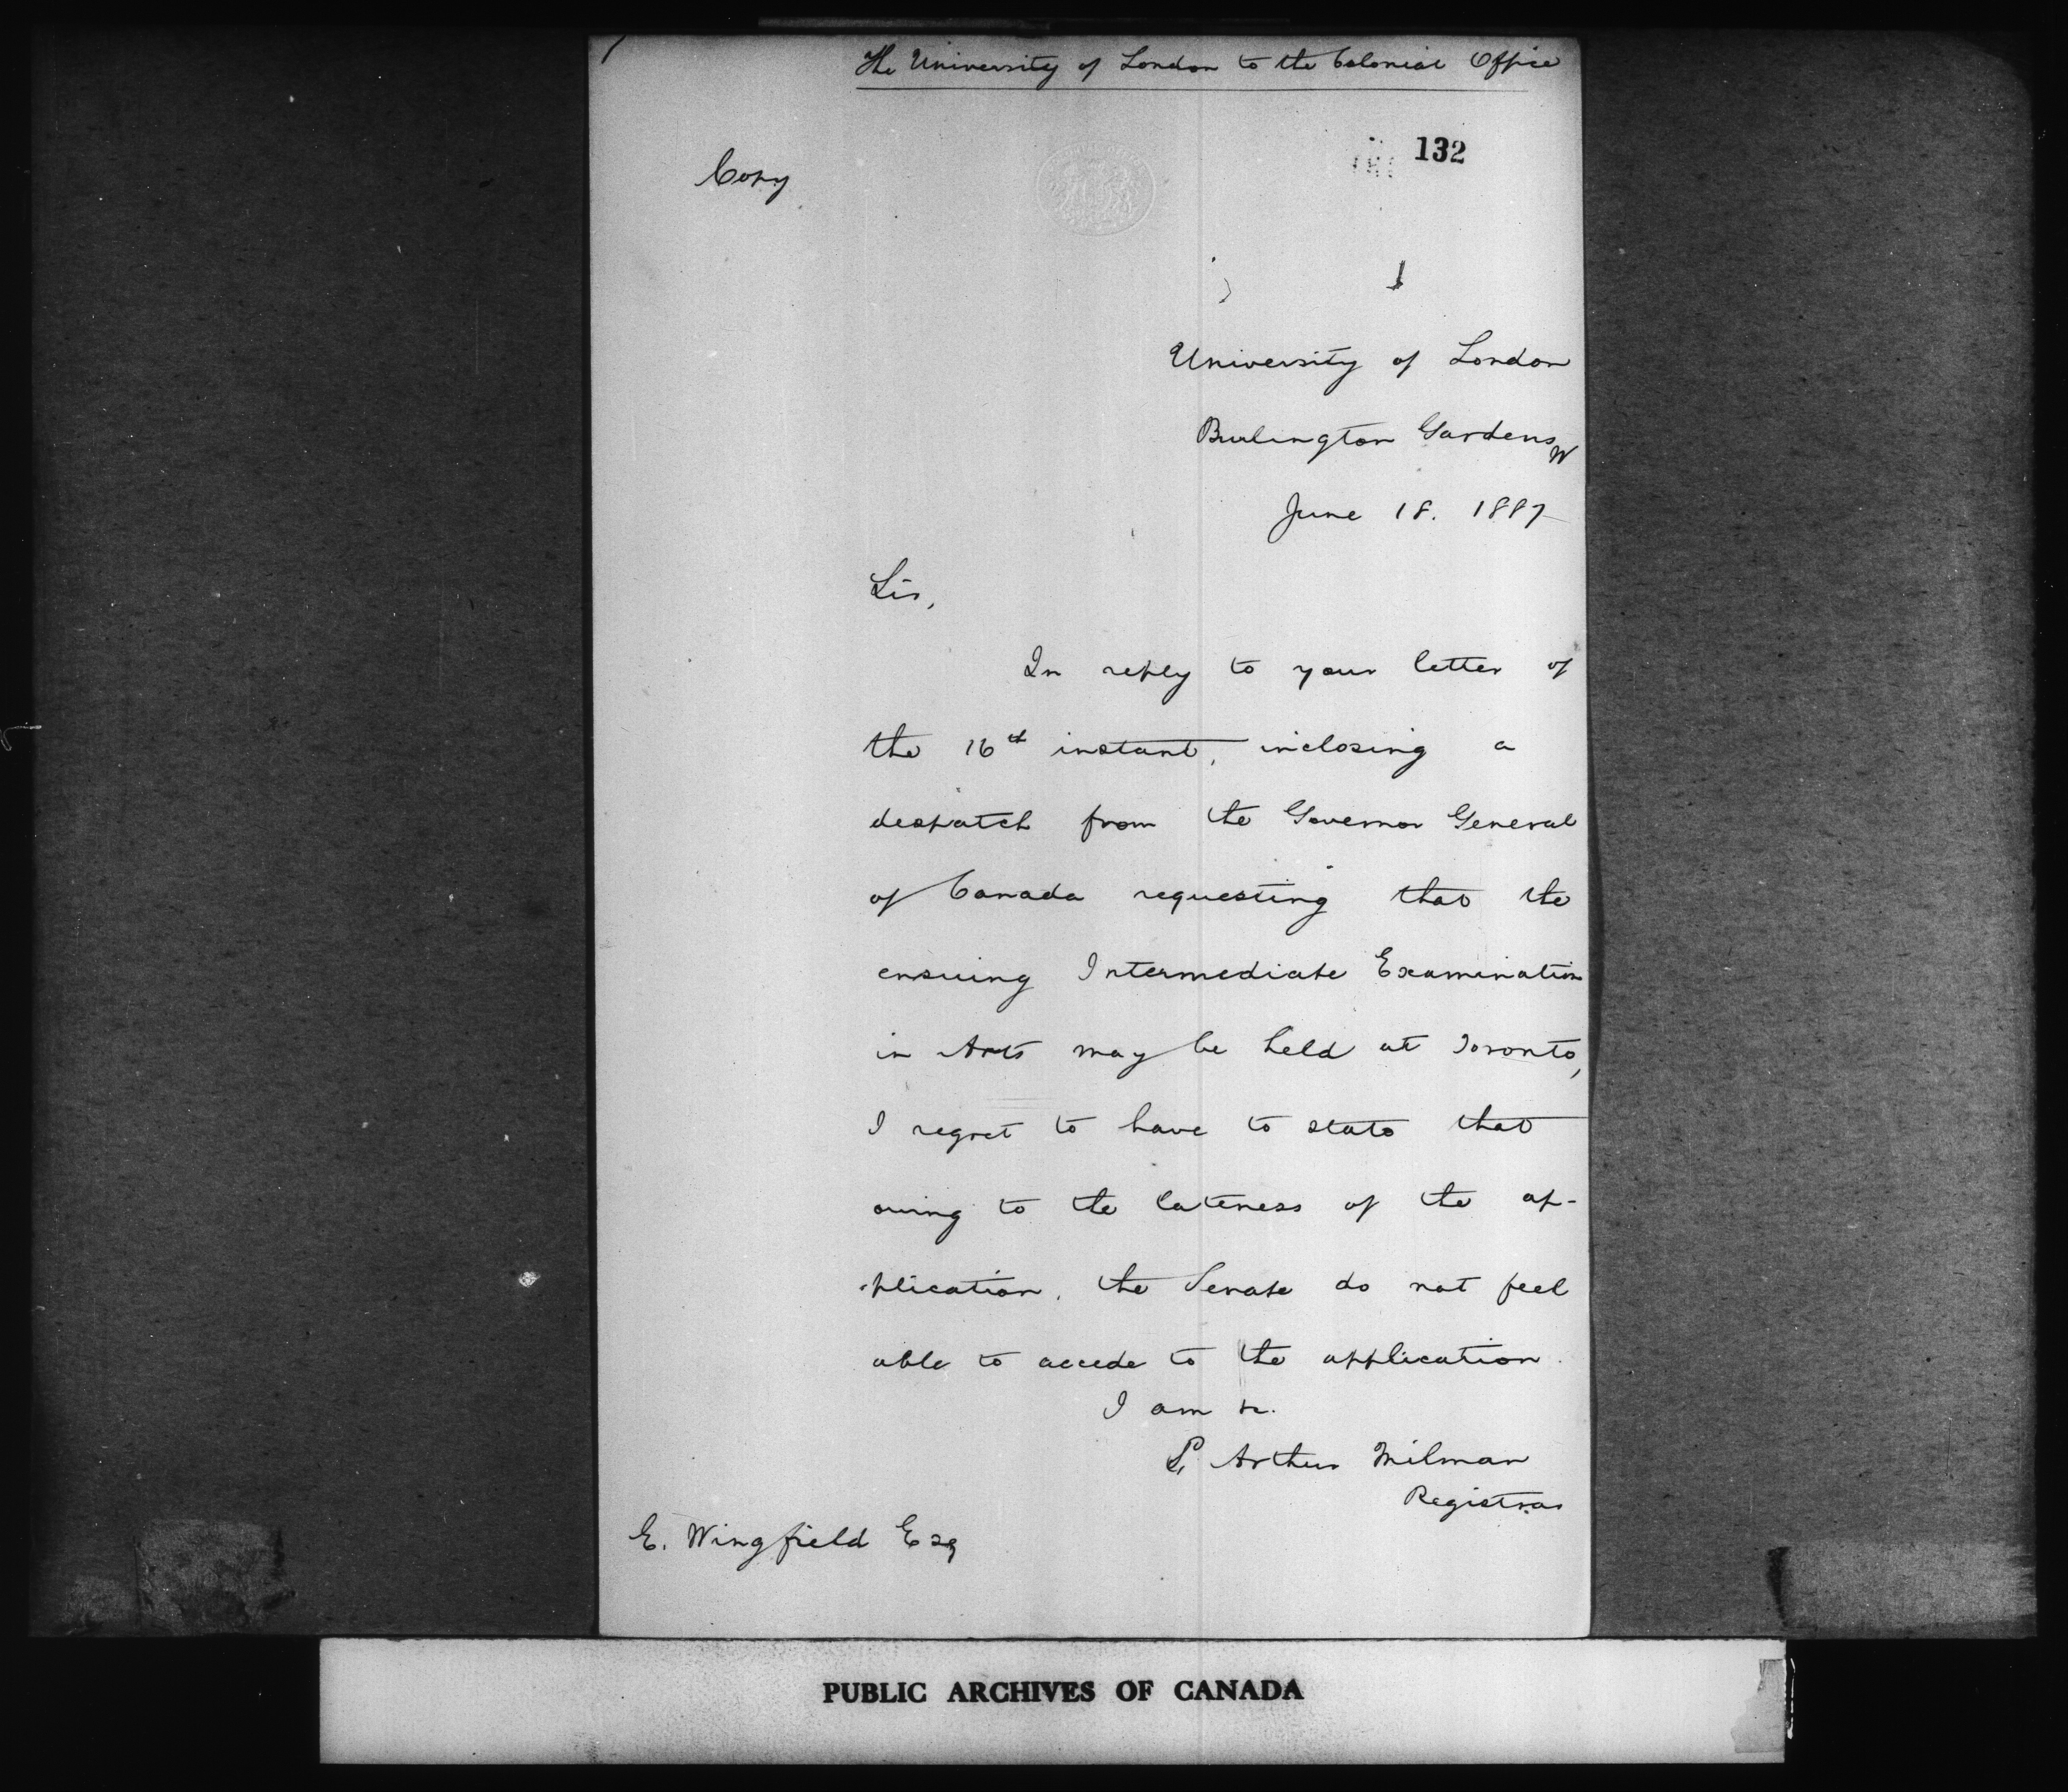 The University of London to the Colonial Office
132
Copy
University of London
Burlington Gardens W
June 18. 1887
Sir,
In reply to your letter of
the 16th instant, inclosing a
despatch from the Governor General
of Canada requesting that the
ensuing Intermediate Examination
in Arts may be held at Toronto,
I regret to have to state that
owing to the lateness of the ap-
-plication, the Senate do not feel
able to accede to the application.
I am &c.
Arthur Milman
Registrar
E. Wingfield Esq
PUBLIC ARCHIVES OF CANADA